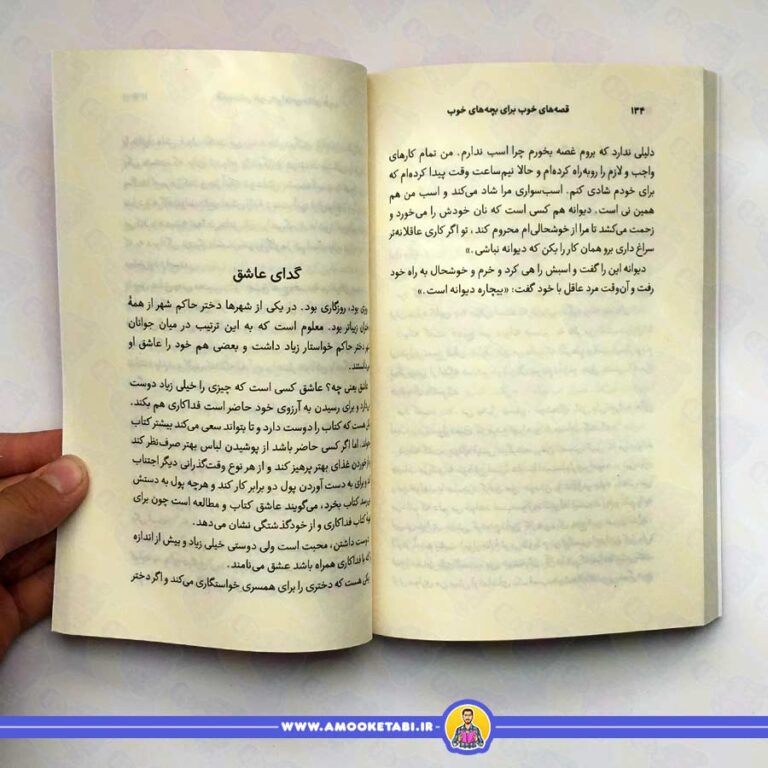 ۱۳۴
قصه‌های خوب برای بچه‌های خوب
دلیلی ندارد که بروم غصه بخورم چرا اسب ندارم. من تمام کارهای
واجب و لازم را روبه‌راه کرده‌ام و حالا نیم‌ساعت وقت پیدا کرده‌ام که
برای خودم شادی کنم. اسب‌سواری مرا شاد می‌کند و اسب من هم
همین نی است. دیوانه هم کسی است که نان خودش را می‌خورد و
زحمت می‌کشد تا مرا از خوشحالی‌ام محروم کند، تو اگر کاری عاقلانه‌تر
سراغ داری برو همان کار را بکن که دیوانه نباشی.»
دیوانه این را گفت و اسبش را هی کرد و خرم و خوشحال به راه خود
رفت و آن‌وقت مرد عاقل با خود گفت: «بیچاره دیوانه است.»
گدای عاشق
بود، روزگاری بود. در یکی از شهرها دختر حاکم شهر از همهٔ
زیباتر بود. معلوم است که به این ترتیب در میان جوانان
دختر حاکم خواستار زیاد داشت و بعضی هم خود را عاشق او
عاشق یعنی چه؟ عاشق کسی است که چیزی را خیلی زیاد دوست
و برای رسیدن به آرزوی خود حاضر است فداکاری هم بکند.
هست که کتاب را دوست دارد و تا بتواند سعی می‌کند بیشتر کتاب
اما اگر کسی حاضر باشد از پوشیدن لباس بهتر صرف‌نظر کند
خوردن غذای بهتر پرهیز کند و از هر نوع وقت‌گذرانی دیگر اجتناب
و برای به دست آوردن پول دو برابر کار کند و هرچه پول به دستش
کتاب بخرد، می‌گویند عاشق کتاب و مطالعه است چون برای
کتاب فداکاری و از خودگذشتگی نشان می‌دهد.
دوست داشتن، محبت است ولی دوستی خیلی زیاد و بیش از اندازه
که با فداکاری همراه باشد عشق می‌نامند.
هست که دختری را برای همسری خواستگاری می‌کند و اگر دختر
WWW.AMOOKETABI.IR